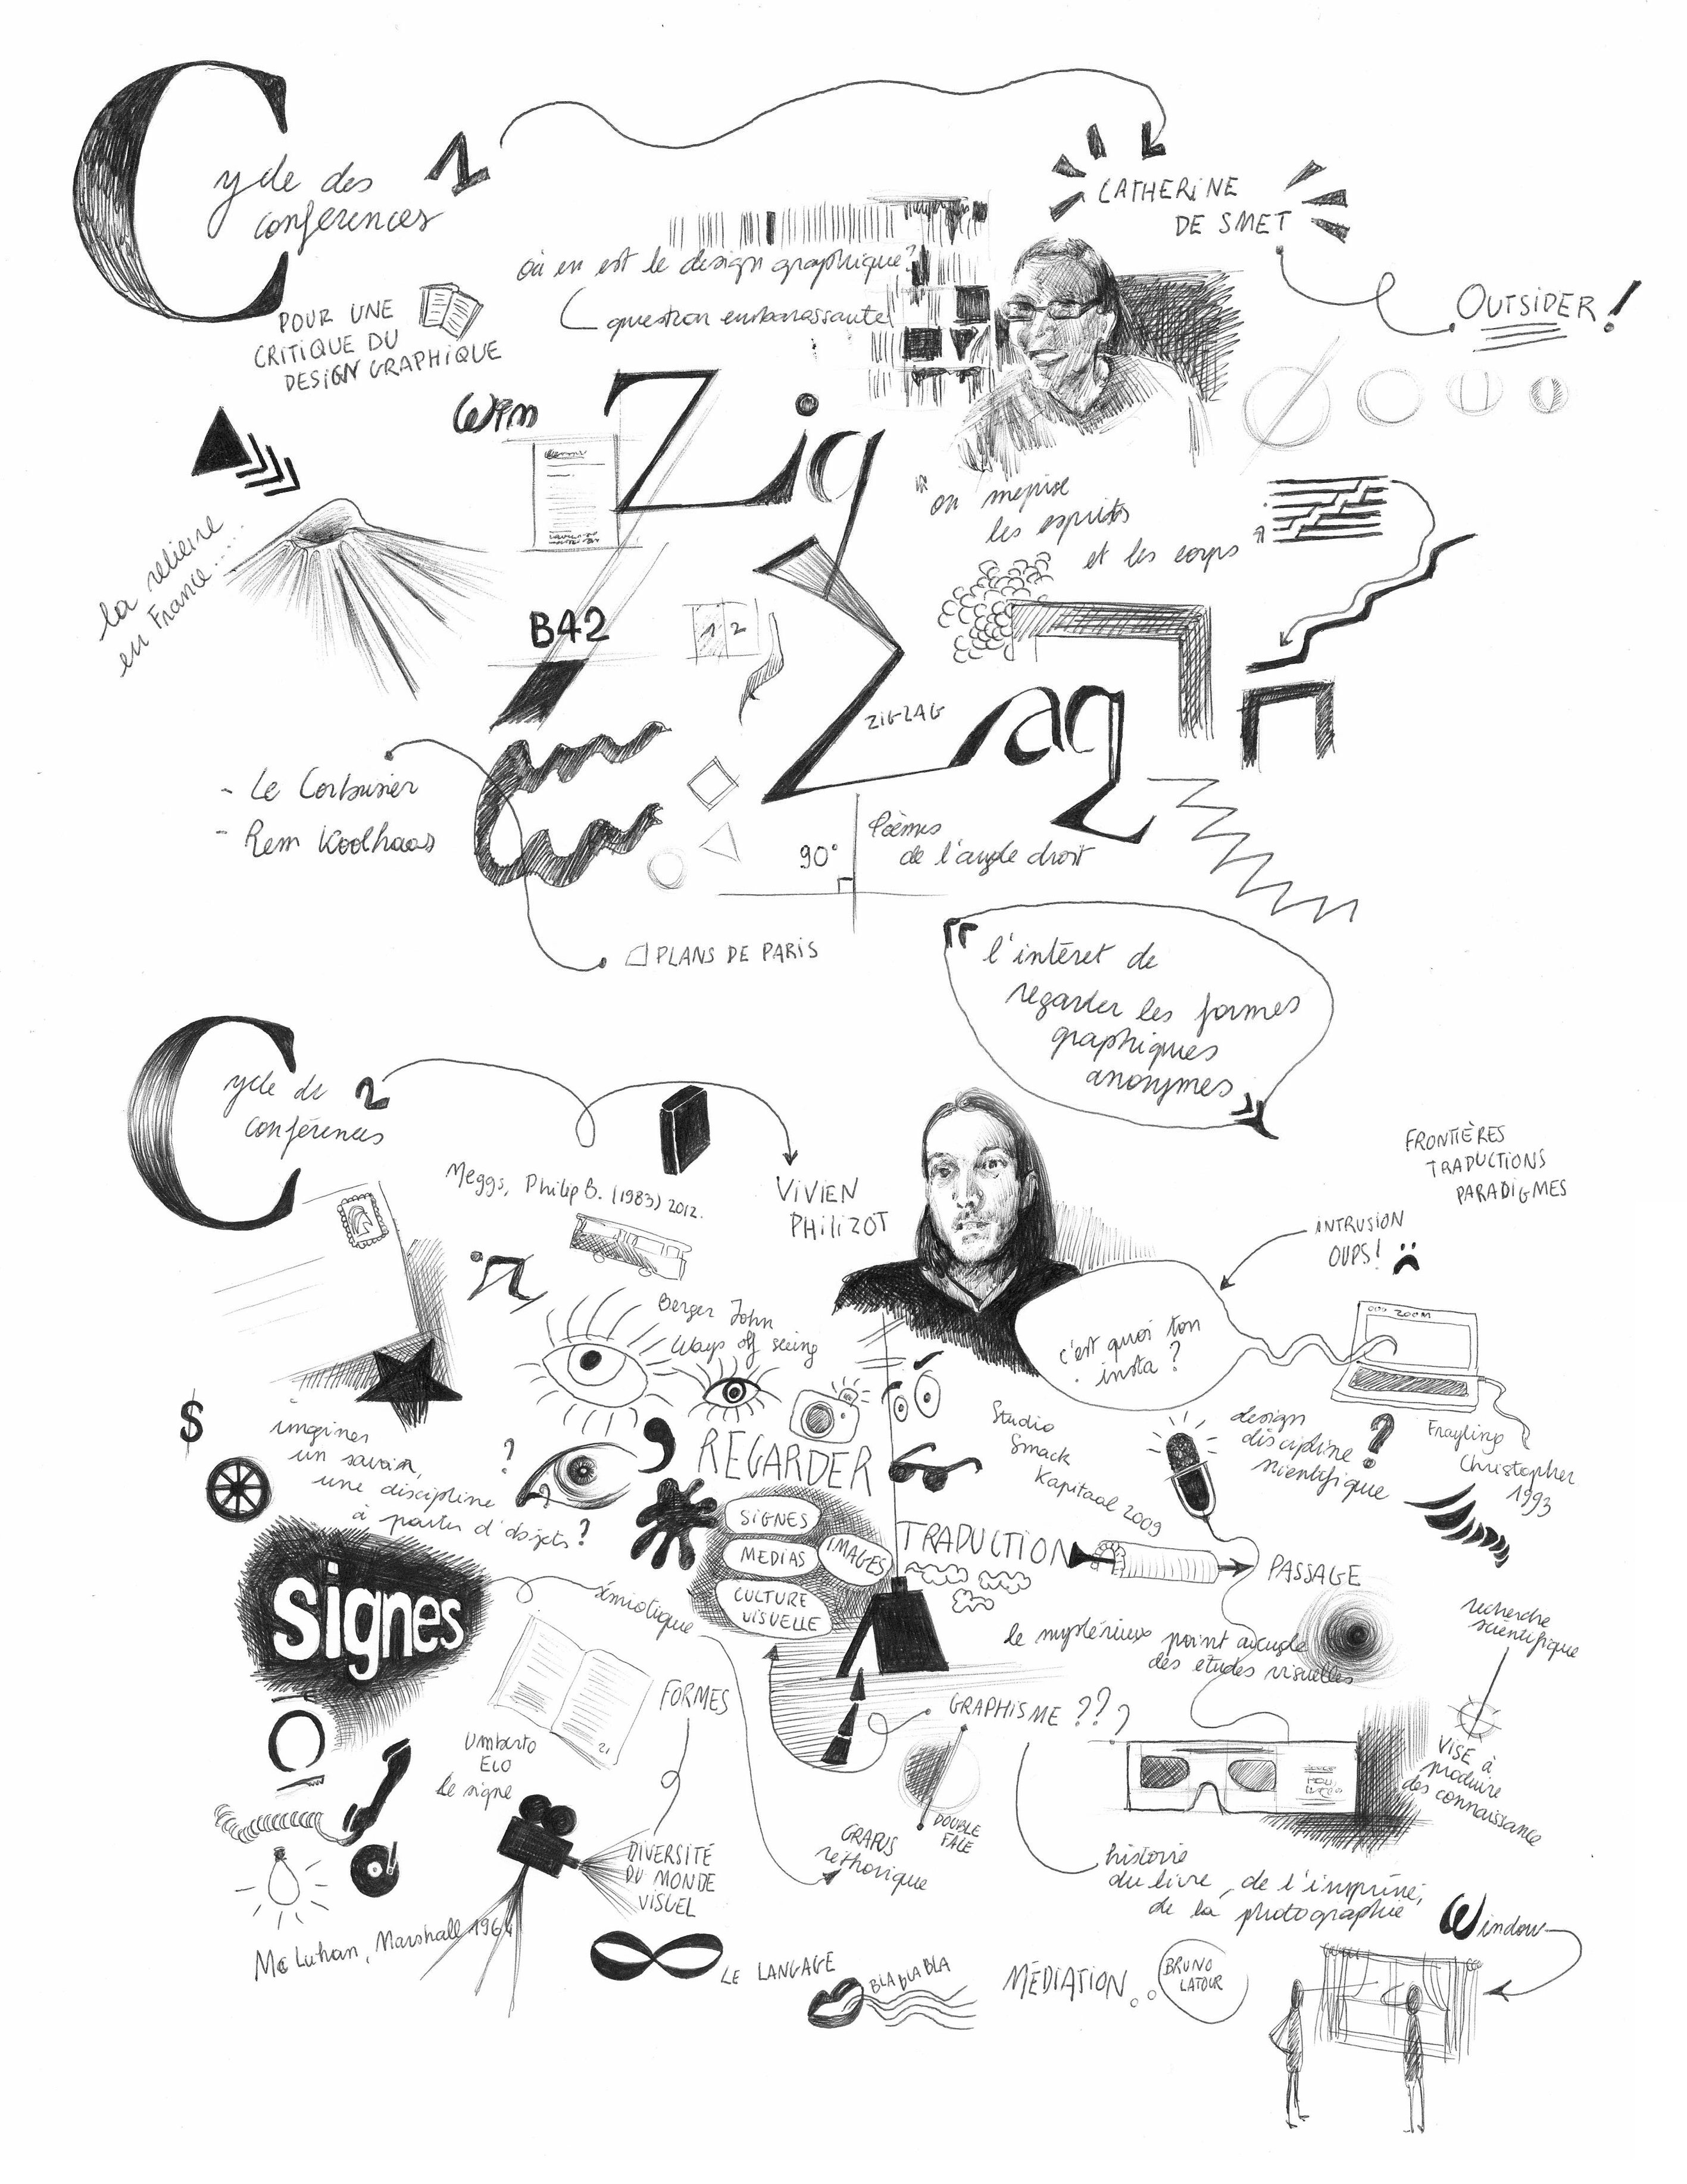 Cycle des
conférences
1
CATHERINE
DE SMET
OUTSIDER!
où en est le design graphique?
question embarassante!
POUR UNE
CRITIQUE DU
DESIGN GRAPHIQUE
Wim
Zig
on méprise
les esprits
et les corps
la relieure
en France....
B42
1 2
ZIGZAG
Zag
- Le Corbusier
- Rem Koolhaas
90°
Poèmes
de l'angle droit
PLANS DE PARIS
l'intéret de
regarder les formes
graphiques
anonymes
Cycle de
conférences
2
Meggs, Philip B. (1983) 2012.
VIVIEN
PHILIZOT
FRONTIÈRES
TRADUCTIONS
PARADIGMES
INTRUSION
OUPS! :(
ZOOM
c'est quoi ton
insta?
Berger John
Ways of seeing
$
imaginer
un savoir,
une discipline
à partir d'objets?
?
REGARDER
Studio
Smack
Kapitaal 2009
design
discipline
scientifique
?
Frayling
Christopher
1993
SIGNES
MEDIAS
IMAGES
CULTURE
VISUELLE
TRADUCTION
PASSAGE
Signes
sémiotique
le mystérieux point aveugle
des études visuelles
recherche
scientifique
VISE à
produire
des connaissance
FORMES
GRAPHISME ???
21
Umberto
Eco
le signe
GRAPUS
réthorique
DOUBLE
FACE
DIVERSITÉ
DU MONDE
VISUEL
histoire
du livre, de l'imprimé,
de la photographie
Window
Mc Luhan, Marshall 1964
LE LANGAGE
BLA BLA BLA
MÉDIATION
BRUNO
LATOUR